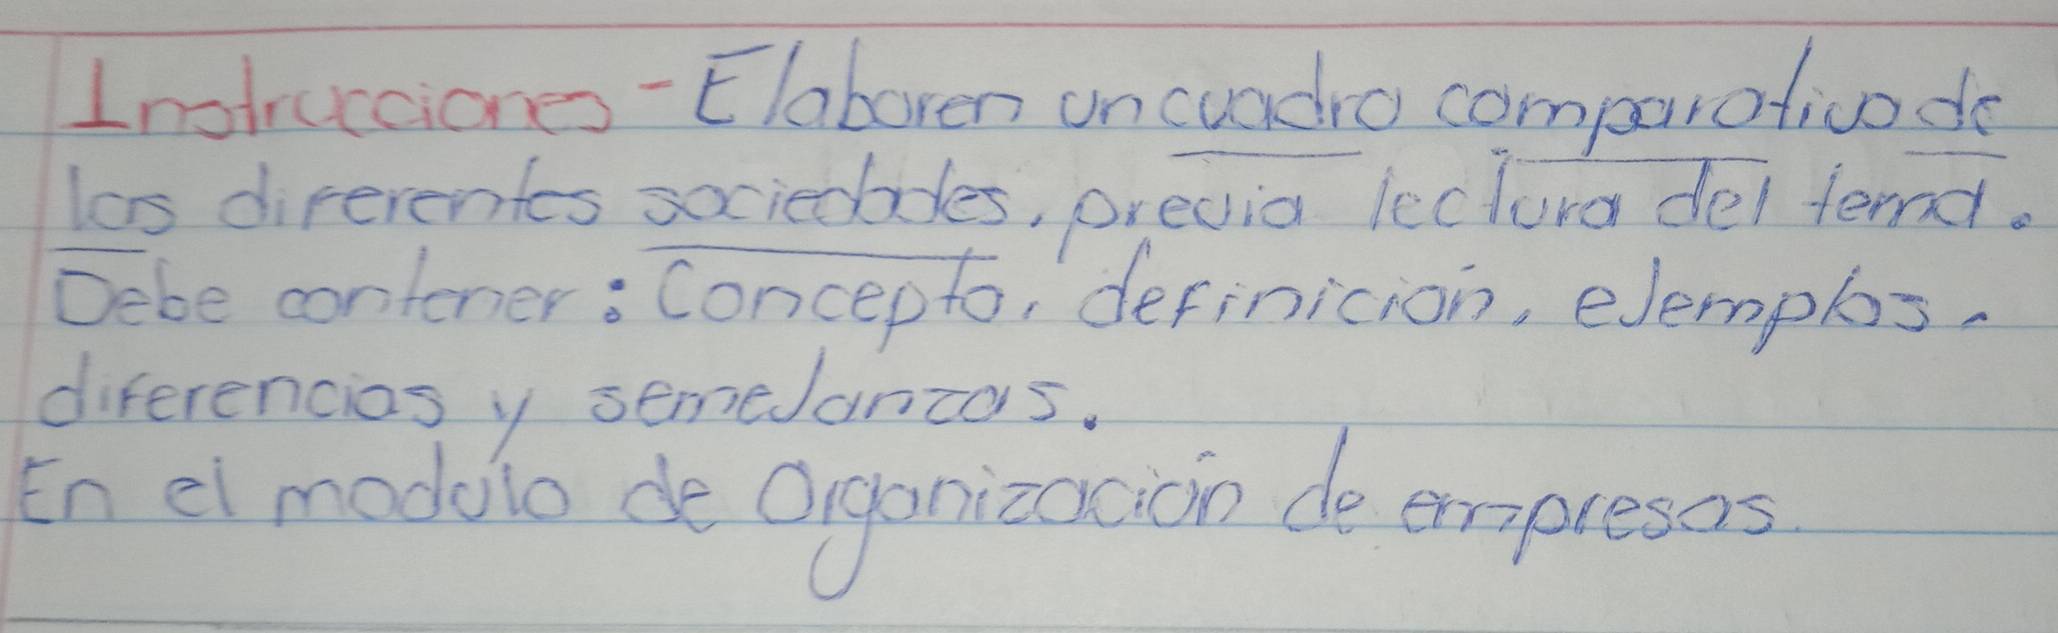 Instrucciones - Elaboren un cuadro comparativo de
las diferentes sociedades, previa lectura del tema.
Debe contener: Concepto, definición, eJemplos,
diferencias y semeJanzas.
En el modulo de Organización de empresas.